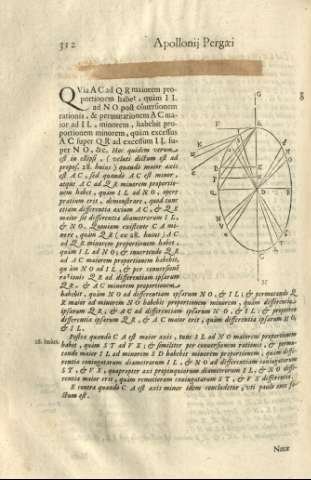 312 Apollonij Pergæi
QVia AC ad QR maiorem pro-
portionem habet, quàm IL
ad NO post conuersionem
rationis, & permutationem AC ma-
ior ad IL, minorem, habebit pro-
portionem minorem, quàm excessus
AC super QR ad excessum IL su-
per NO, &c. Hoc quidem verum
est in ellipsi, (veluti dictum est ad
propos. 28. huius) quando maior axis
est AC, sed quando AC est minor,
atque AC ad QR minorem proportio-
nem habet, quàm IL ad NO, opere
pretium erit, demonstrare, quod tunc
etiam differentia axium AC, & QR
maior sit differentia diametrorum IL,
& NO. Quoniam existente CA mi-
nore, quàm QR (ex 28. huius) AC
ad QR minorem proportionem habet,
quàm IL ad NO; & inuertendo QR
ad AC maiorem proportionem habebit,
quàm NO ad IL, & per conuersionem
rationis QR ad differentiam ipsarum
QR, & AC minorem proportionem
habebit, quàm NO ad differentiam ipsarum NO, & IL; & permutando QR
maior ad minorem NO habebit proportionem minorem, quàm differentia
ipsarum QR, & AC ad differentiam ipsarum NO, & IL; & propterea
differentia ipsarum QR, & AC maior erit, quàm differentia ipsarum NO,
& IL.
Postea quando CA est maior axis, tunc IL ad NO maiorem proportionem
28. huius. habet, quàm ST ad VX; & similiter per conuersionem rationis, & permu-
tando maior IL ad minorem ST habebit minorem proportionem, quàm diffe-
rentia coniugatarum diametrorum IL, & NO ad differentiam coniugatarum
ST, & VX, quapropter axi propinquiorum diametrorum IL, & NO diffe-
rentia maior erit, quàm remotiorum coniugatarum ST, & VX differentia.
E contra quando CA est axis minor idem concludetur, vti paulò ante fa-
ctum est.
Notæ